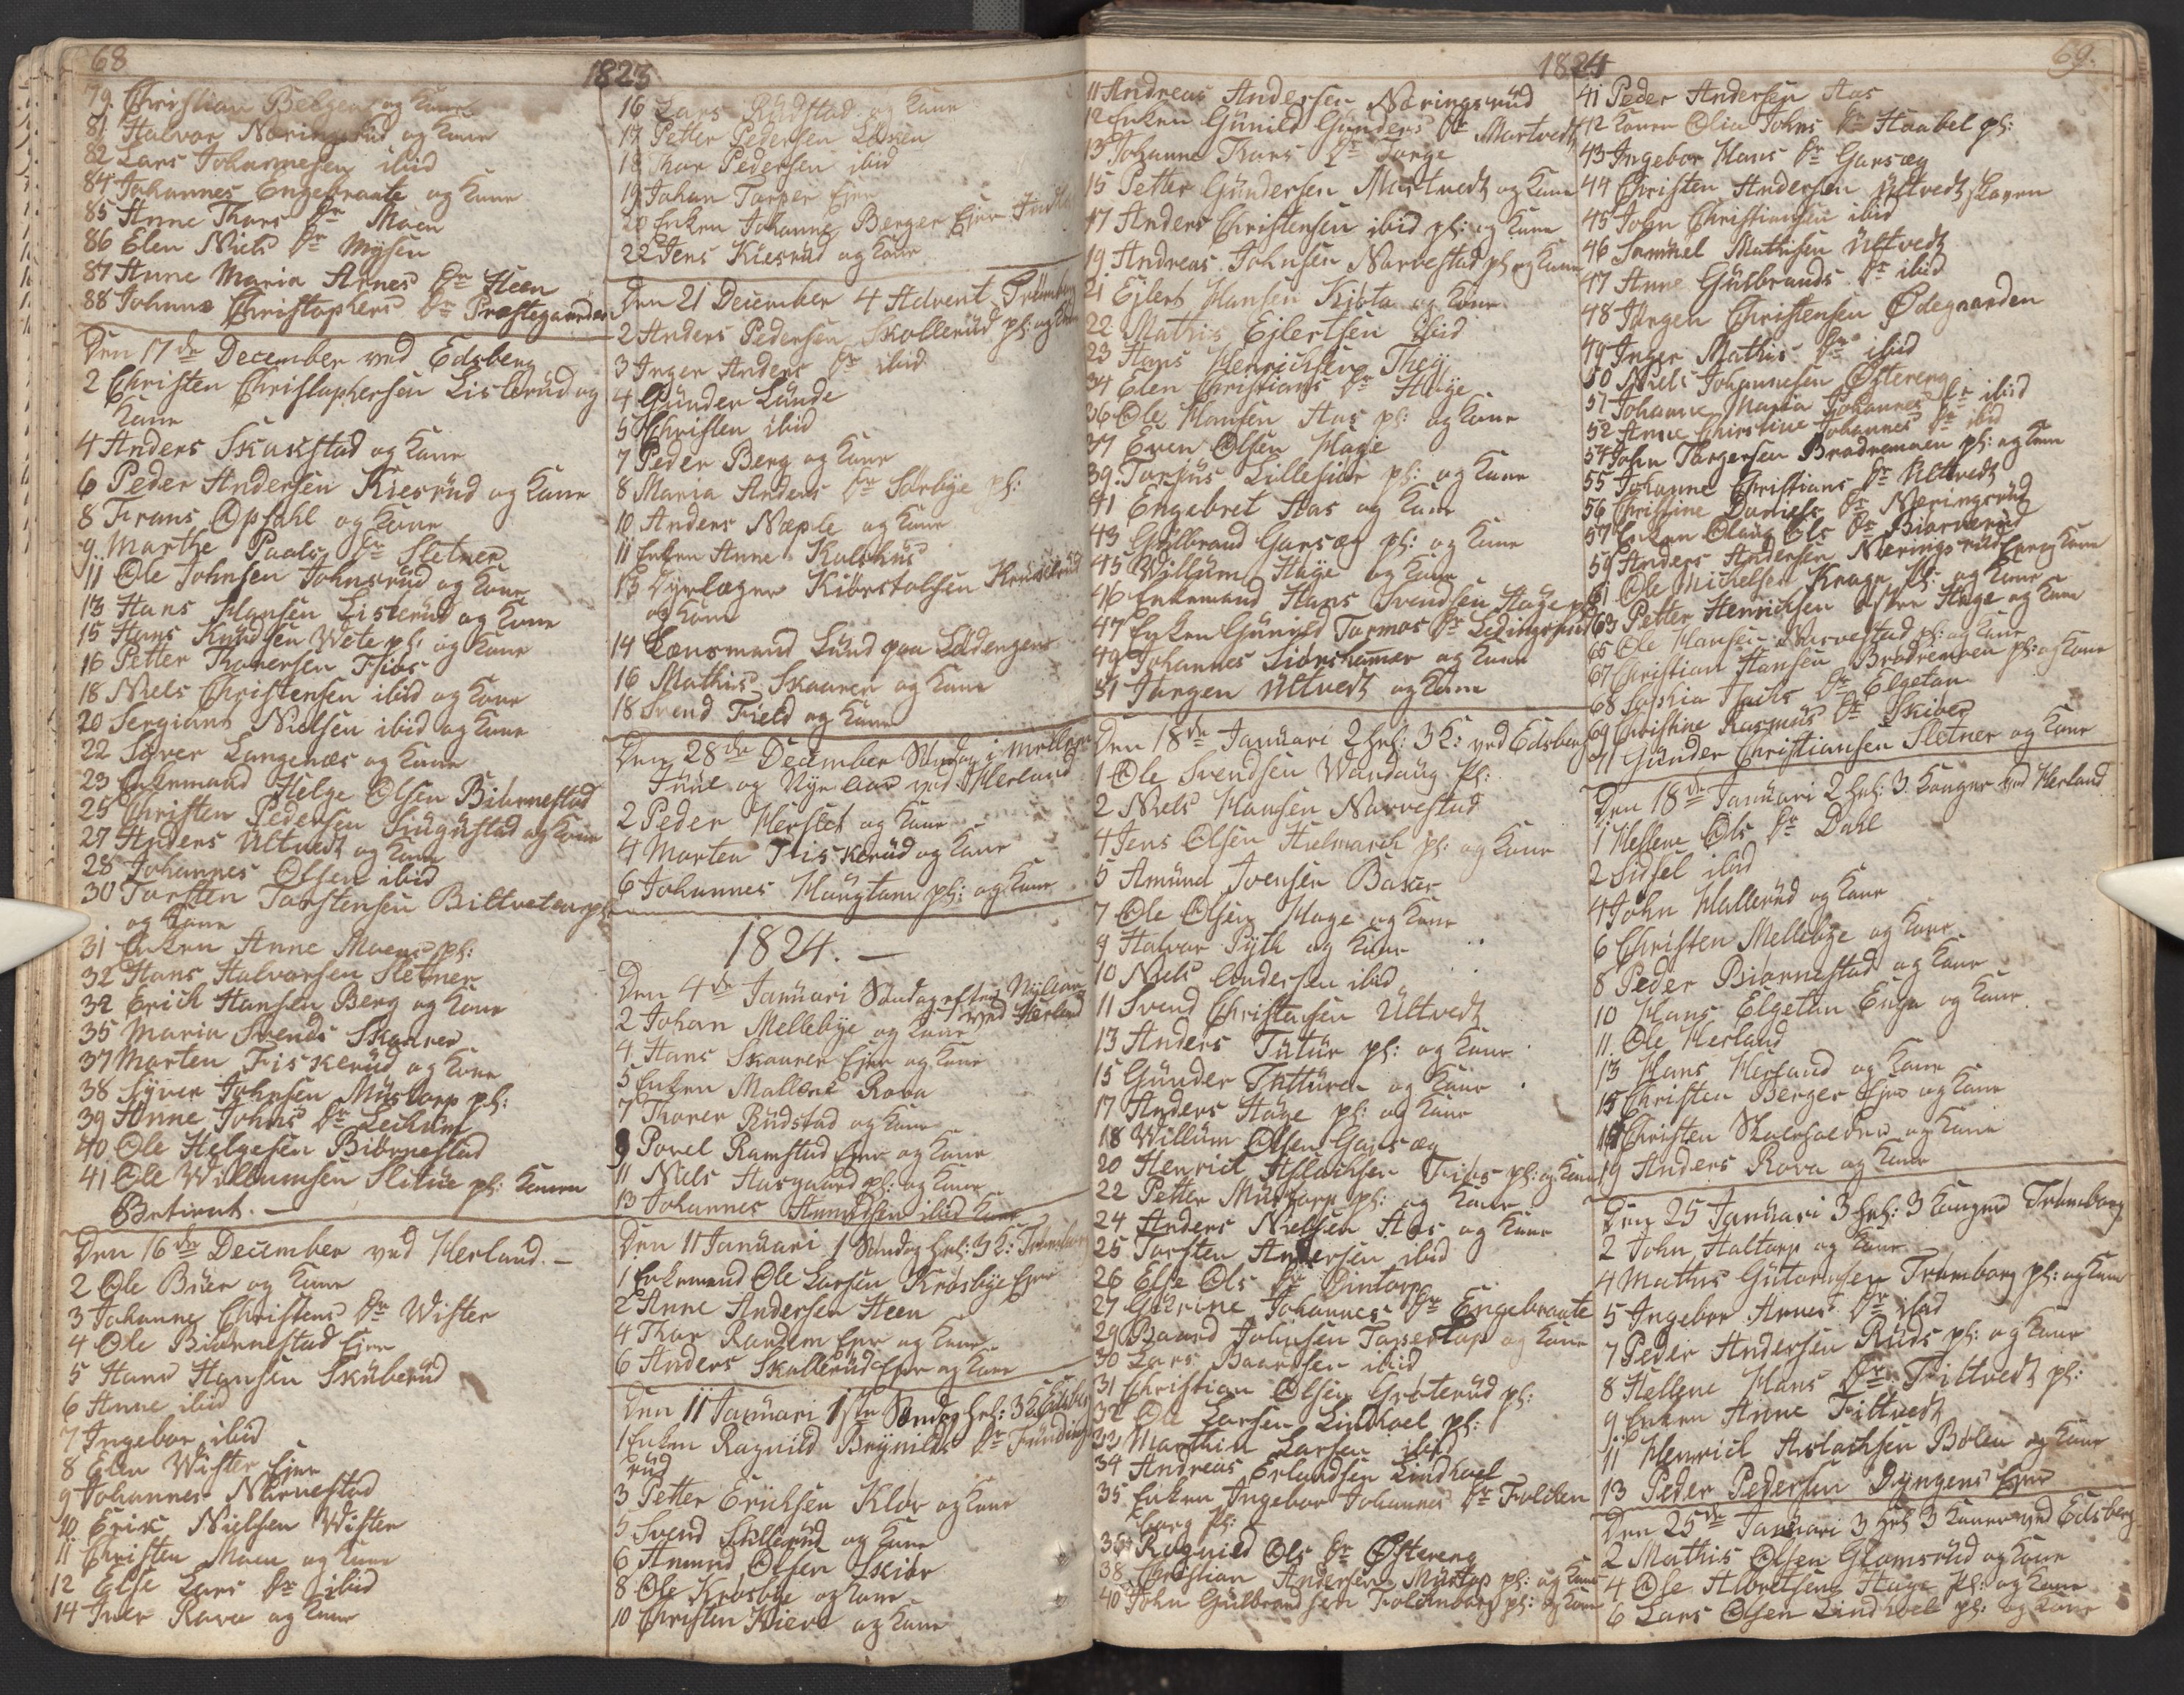 68
1823
79. Christian Belgen og Kone
81 Halvor Næringsrud og Kone
82 Lars Johannesen ibid
84 Johannes Engebraate og Kone
85 Anne Thors Dr Moen
86 Elen Niels Dr Mysen
87 Anne Maria Arnes Dr Heen
88 Johanne Christophers Dr Præstegaarden
Den 17de December ved Edsberg
2 Christen Christophersen Listerud og
Kone
4 Anders Skakstad og Kone
6 Peder Andersen Kiesrud og Kone
8 Frans Opsahl og Kone
9 Marthe Paals Dr Sletner
11 Ole Johnsen Johnsrud og Kone
13 Hans Hansen Listerud og Kone
15 Hans Knudsen Wete pl: og Kone
16 Petter Thoversen Fiøs
18 Niels Christensen ibid og Kone
20 Sergiant Nielsen ibid og Kone
22 Syver Langenæs og Kone
23 Enkemand Helge Olsen Biørnestad
25 Christen Pedersen Siugustad og Kone
27 Anders Ultvedt og Kone
28 Johannes Olsen ibid
30 Torsten Torstensen Biltvet pl:
og Kone
31 Enken Anne Moens pl:
32 Hans Halvorsen Sletner
34 Erich Hansen Berg og Kone
35 Maria Svends Skaarer
37 Morten Fiskerud og Kone
38 Syver Johnsen Mustorp pl:
39 Anne Johns Dr Leikum
40 Ole Helgesen Biørnestad
41 Ole Willumsen Slitue pl: Konen
Betient. -
Den 16de December ved Herland. -
2 Ole Buer og Kone
3 Johanne Christens Dr Wister
4 Ole Biørnestad Eier
5 Hans Hansen Skuberud
6 Anne ibid
7 Ingebor ibid
8 Elen Wister Eier
9 Johannes Narvestad
10 Erik Nielsen Wister
11 Christen Moen og Kone
12 Else Lars Dr ibid
14 Iver Rova og Kone
16 Lars Rudstad og Kone
17 Petter Pedersen
18 Thor Pedersen ibid
19 Johan Torper Eier
20 Enken Johanne Berger Eier
22 Jens Kiesrud og Kone
Den 21 December 4 Advent Trømborg
2 Anders Pedersen Skollerud pl: og Kone
3 Inger Anders Dr ibid
4 Gunder Lunde
5 Christen ibid
7 Peder Berg og Kone
8 Maria Anders Dr Sørbye pl:
10 Anders Næple og Kone
11 Enken Anne Kalshus
13 Dyrlæger Kiøvstolsen
og Kone
14 Lensmand Lund paa Lødengens
16 Mathis Skaarer og Kone
18 Svend Field og Kone
Den 28de December Søndag i mellem
Juul og Nyt aar ved Herland
2 Peder Herslet og Kone
4 Morten Fiskerud og Kone
6 Johannes Haugtom pl: og Kone
1824. -
Den 4de Januari Søndag efter Nytaar
ved Herland
2 Johan Mellebye og Kone
4 Hans Skaarer Eier og Kone
5 Enken Mallene Rova
7 Thorer Rudstad og Kone
9 Povel Ramstad Eier og Kone
11 Niels Aasgaard pl: og Kone
13 Johannes Amundsen ibid Kone
Den 11 Januari 1 Søndag hel: 3 K: Trømborg
1 Enkemand Ole Larsen Krosbye Eier
2 Anne Andersen Heen
4 Thor Randem Eier og Kone
6 Anders Skallerud Eier og Kone
Den 11 Januari 1ste Søndag hel: 3 K: Edsberg
1 Enken Ragnild Brynilds Dr Fundings
rud
3 Petter Erichsen Kløv og Kone
5 Svend Skllerud og Kone
6 Amund Olsen Skiør
8 Ole Krosbye og Kone
10 Christen Huer og Kone
1824
69.
11 Andreas Andersen Næringsrud
12 Enken Gunild Gunders Dr Martvedt
13 Johanne Thors Dr Torge
15 Petter Gundersen Mastvedt og Kone
17 Anders Christensen ibid pl: og Kone
19 Andreas Johnsen Narvestad pl: og Kone
21 Ejlert Hansen Kibsta og Kone
22 Mathis Ejlertsen ibid
23 Hans Henrichsen Thøy
34 Elen Christians Dr Haye
36 Ole Hansen Aas pl: og Kone
37 Even Olsen Haye
39 Torjus Lillesiør pl: og Kone
41 Engebret Aas og Kone
43 Gulbrand Garsæg pl: og Kone
45 Willum Haye og Kone
46 Enkemand Hans Svendsen Haye pl:
47 Enken Gunild Tormos Dr Ledingsrud
49 Johannes Siørshammer og Kone
51 Jørgen Ultvedt og Kone
Den 18de Januari 2 hel: 3 K: ved Edsberg
1 Ole Svendsen Wandaug pl:
2 Niels Hansen Narvestad
4 Jens Olsen Hielmark pl: og Kone
5 Amund Ivensen Baker
7 Ole Olsen Haye og Kone
9 Halvor Pyth og Kone
10 Niels Andersen ibid
11 Svend Christensen Ultvedt
13 Anders Tutur pl: og Kone
15 Gunder Thuttüren og Kone
17 Anders Haye pl: og Kone
18 Willum Olsen Garsæg
20 Henrich Asslachsen Fiøs pl: og Kone
22 Petter Mustorp pl: og Kone
24 Anders Nielsen Aas og Kone
25 Torsten Andersen ibid
26 Else Ols Dr Vintorp
27 Gurine Johannes Dr Engebraate
29 Baard Johnsen Tosertop og Kone
30 Lars Baardsen ibid
31 Christian Olsen Grøterud pl:
32 Ole Larsen Lindhoel pl:
33 Marthin Larsen ibid
34 Andreas Erlandsen Lindhoel
35 Enken Ingebor Johannes Dr Folken
borg pl:
36 Ragnild Ols Dr Østereng
38 Christian Andersen Mustop pl: og Kone
40 John Gulbrandsen Folkenborg pl: og Kone
41 Peder Andersen Aas
42 Konen Olia Johns Dr Haabel pl:
43 Ingebor Hans Dr Garsæg
44 Christen Andersen Ultvedt skoven
45 John Christiansen ibid
46 Samuel Mathisen Ultvedt
47 Anne Gulbrands Dr ibid
48 Jørgen Christensen Ødegaarden
49 Inger Mathis Dr ibid
50 Niels Johannesen Østereng
51 Johanne Maria Johannes Dr ibid
52 Anne Christine Johannes Dr ibid
54 John Torgersen Brødremoen pl: og Kone
55 Johanne Christians Dr Ultvedt
56 Christine Daniels Dr Næringsrud
57 Enken Olaug Ols Dr Biørnerud
59 Anders Andersen Næringsrud Eier og Kone
61 Ole Michelsen Krager pl: og Kone
63 Petter Henrichsen østre Haye og Kone
65 Ole Hansen Narvestad pl: og Kone
67 Christian Hansen Brødremoen pl: og Kone
68 Sophia Dr Elgetun
69 Christine Rasmus Dr Skiber
71 Gunder Christiansen Sletner og Kone
Den 18de Januari 2 hel: 3 Konger ved Herland
1 Hellene Ols Dr Dahl
2 Sidsel ibid
4 John Hallerud og Kone
6 Christen Mellebye og Kone
8 Peder Biørnestad og Kone
10 Hans Elgetun Eier og Kone
11 Ole Herland
13 Hans Herland og Kone
15 Christen Berger Eier og Kone
17 Christen og Kone
19 Anders Rova og Kone
Den 25 Januari 3 hel: 3 Konger Trømborg
2 John Haltorp og Kone
4 Mathis Gutormsen Trømborg pl: og Kone
5 Ingebor Arnes Dr ibid
7 Peder Andersen Ruds pl: og Kone
8 Hellene Hans Dr Tiltvedt pl:
9 Enken Anne Tiltvedt
11 Henrich Aslachsen Bølen og Kone
13 Peder Pedersen Dyngens Eier
Den 25de Januari 3 hel 3 Konger ved Edsberg
2 Mathis Olsen Glamsrud og Kone
4 Ole Albretsen Haye pl: og Kone
6 Lars Olsen Lindhoel pl: og Kone